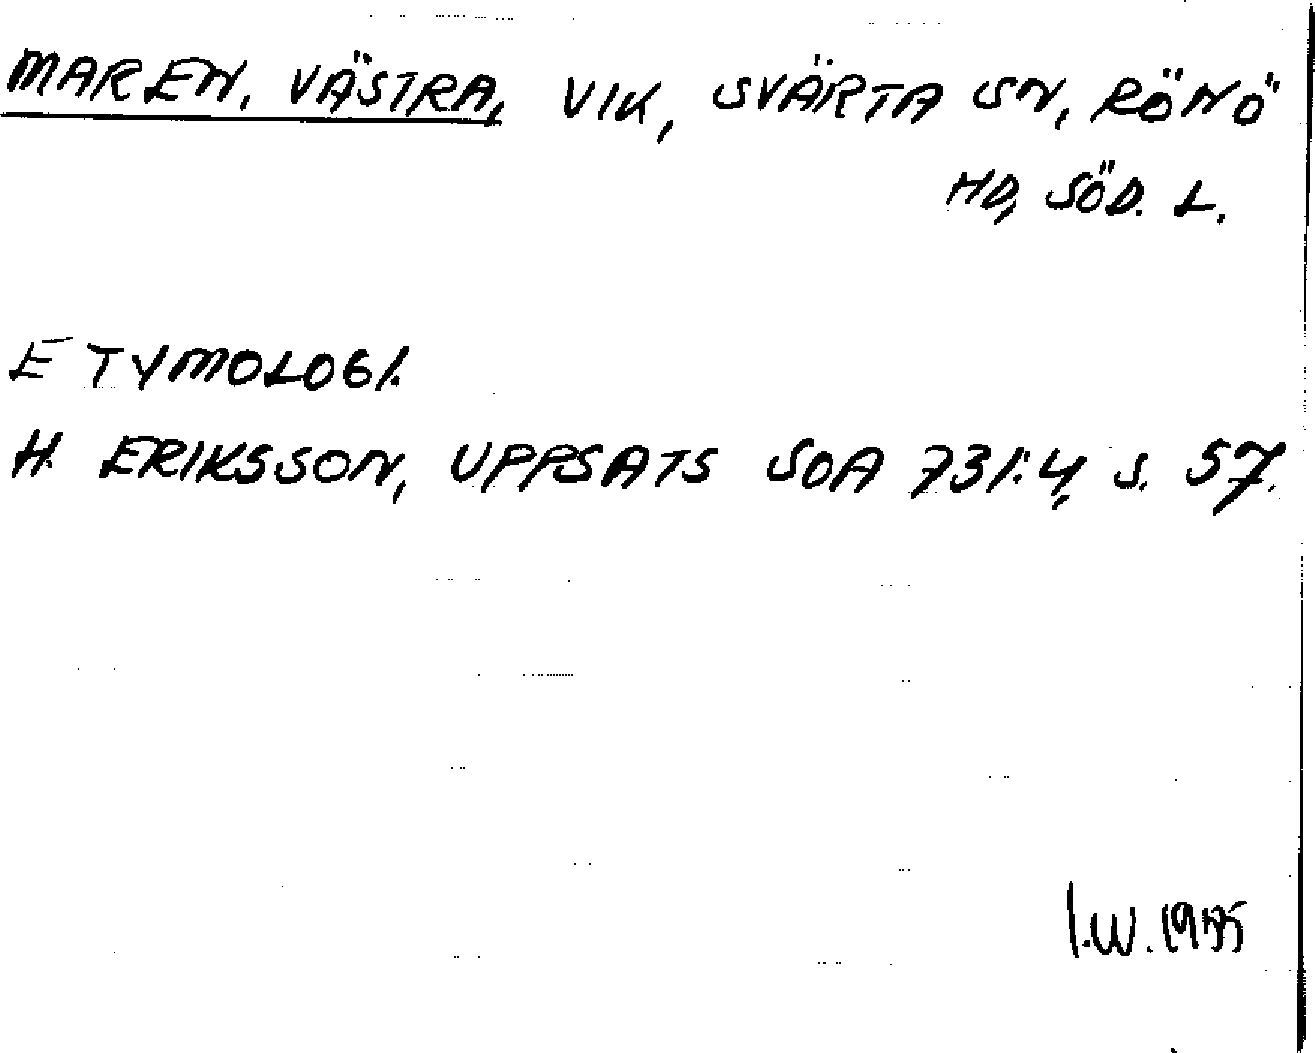 MAREN, VÄSTRA, VIK, SVÄRTA SN, RÖNÖ
HD, SÖD. L.
ETYMOLOGI.
H. ERIKSSON, UPPSATS SOA 731:4, S. 57.
I.W.